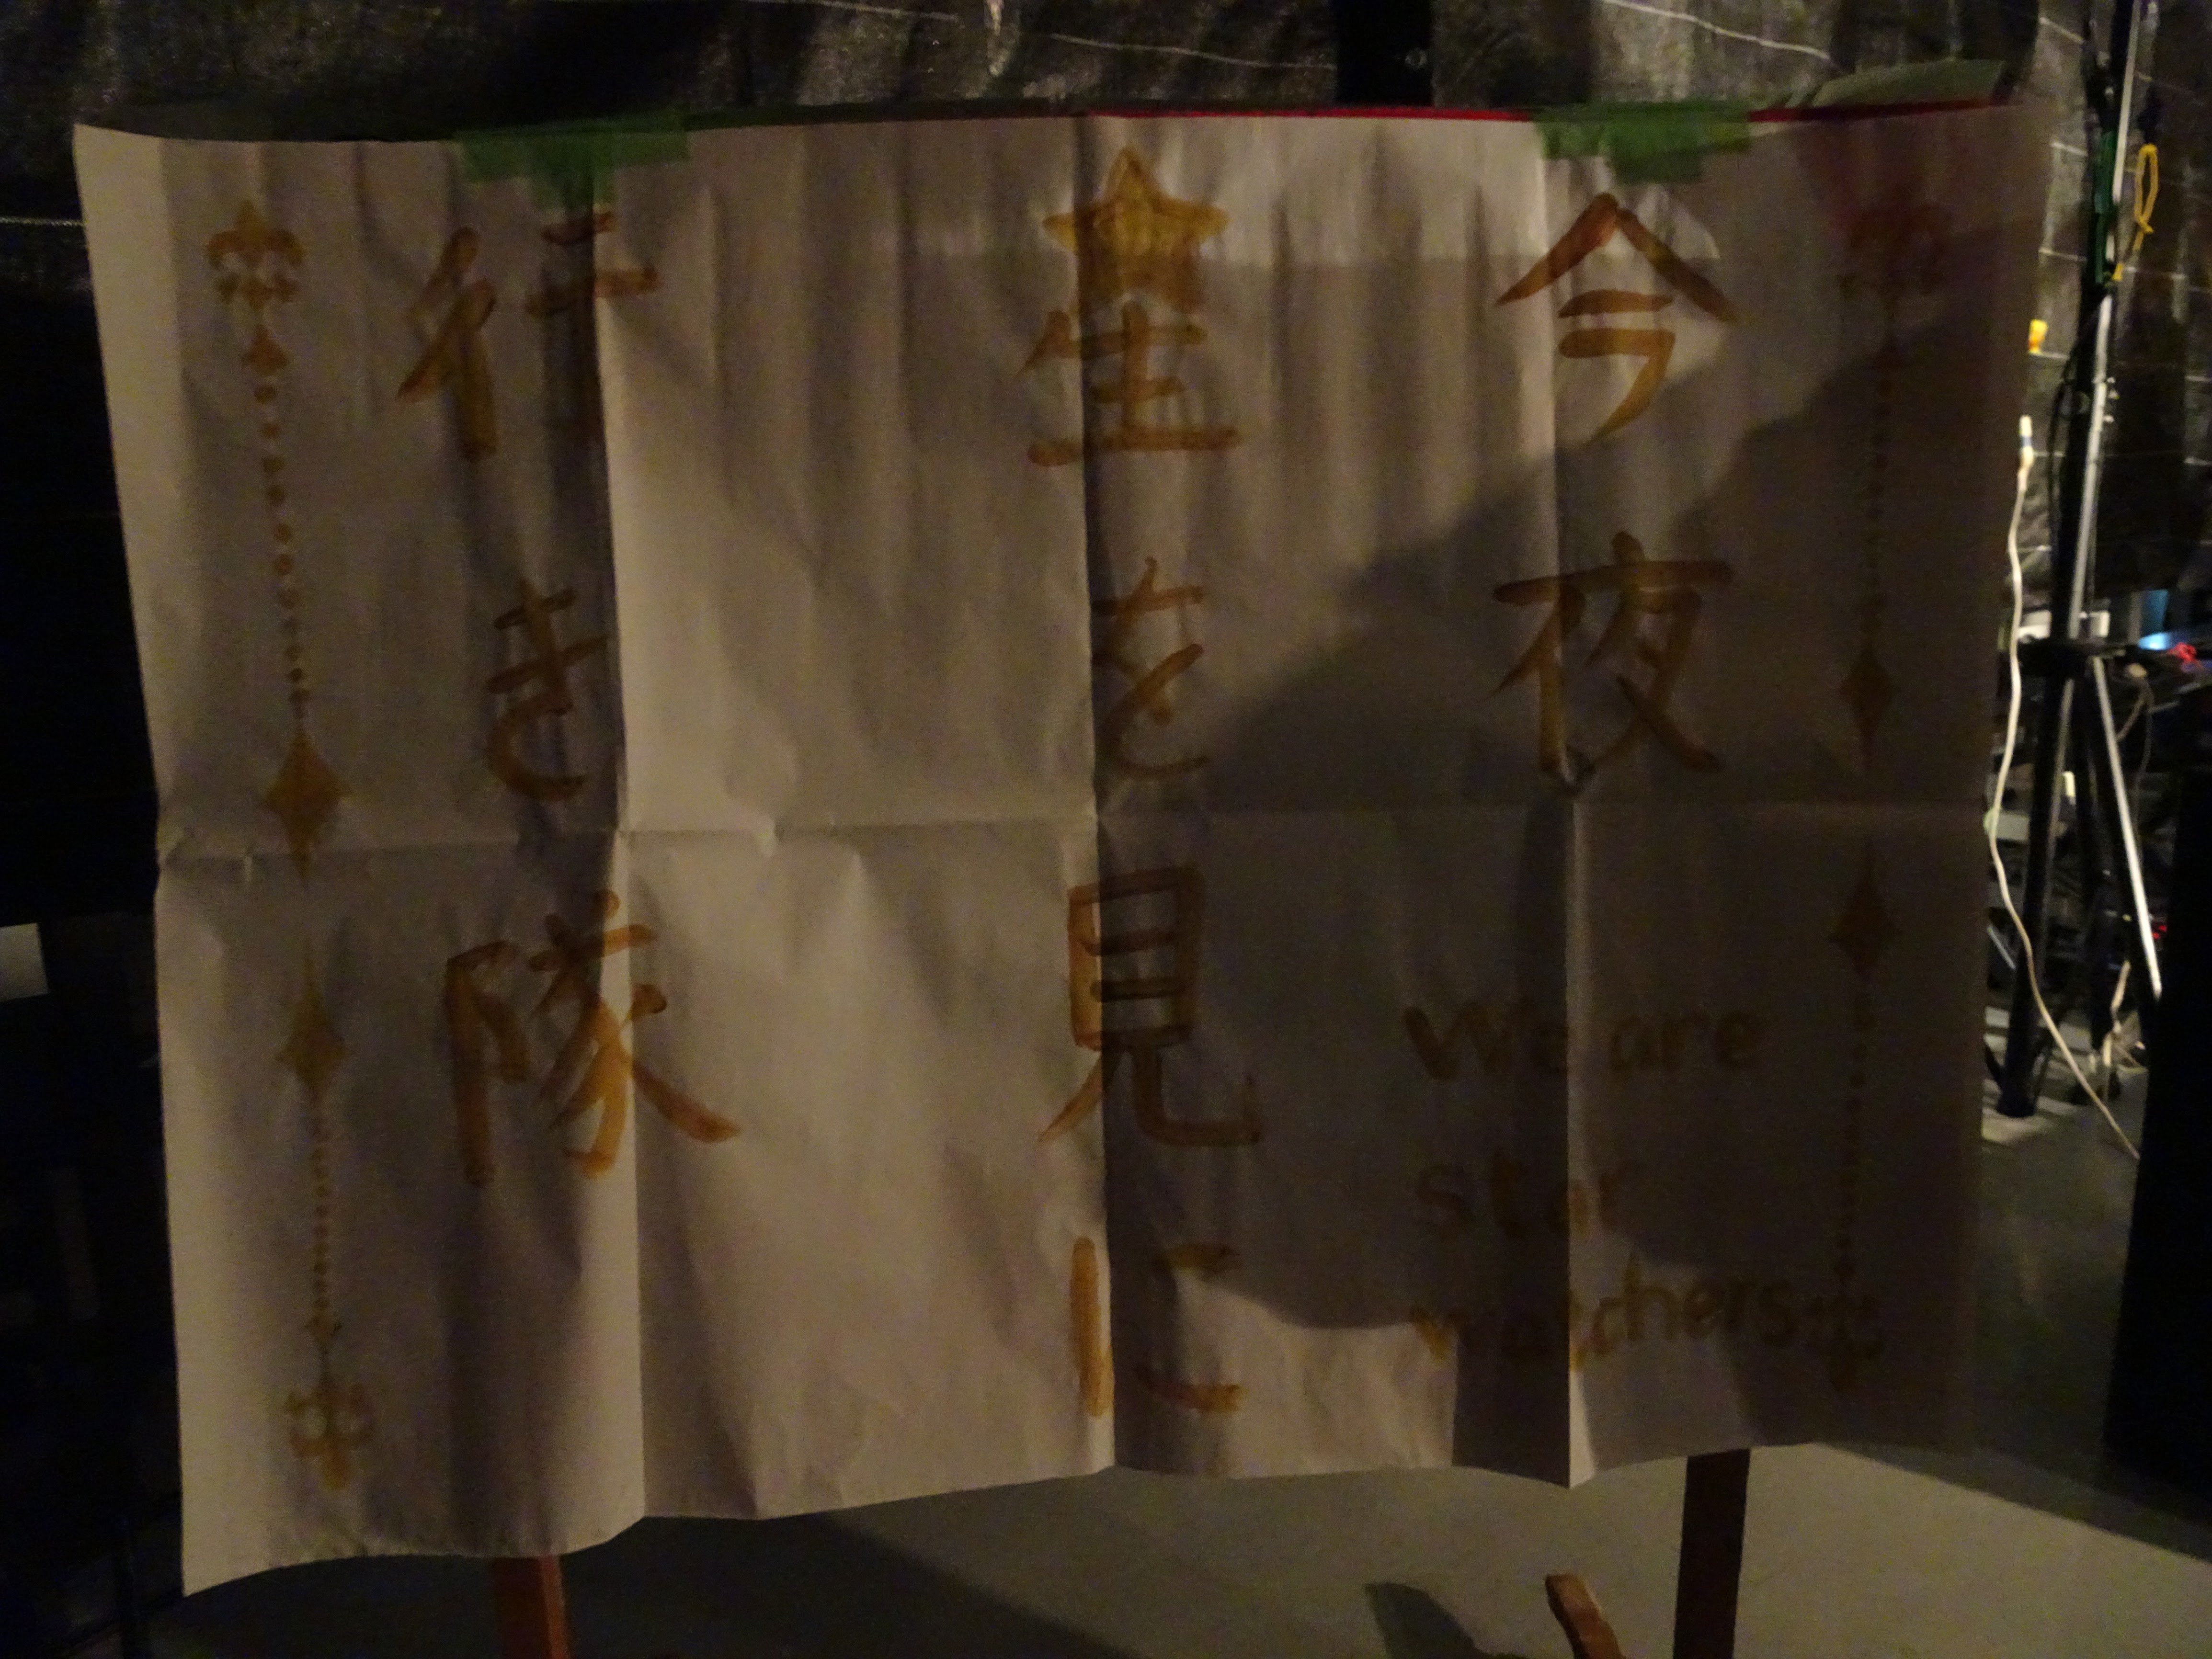 今夜
星を見に
行き隊
We are
star
watchers